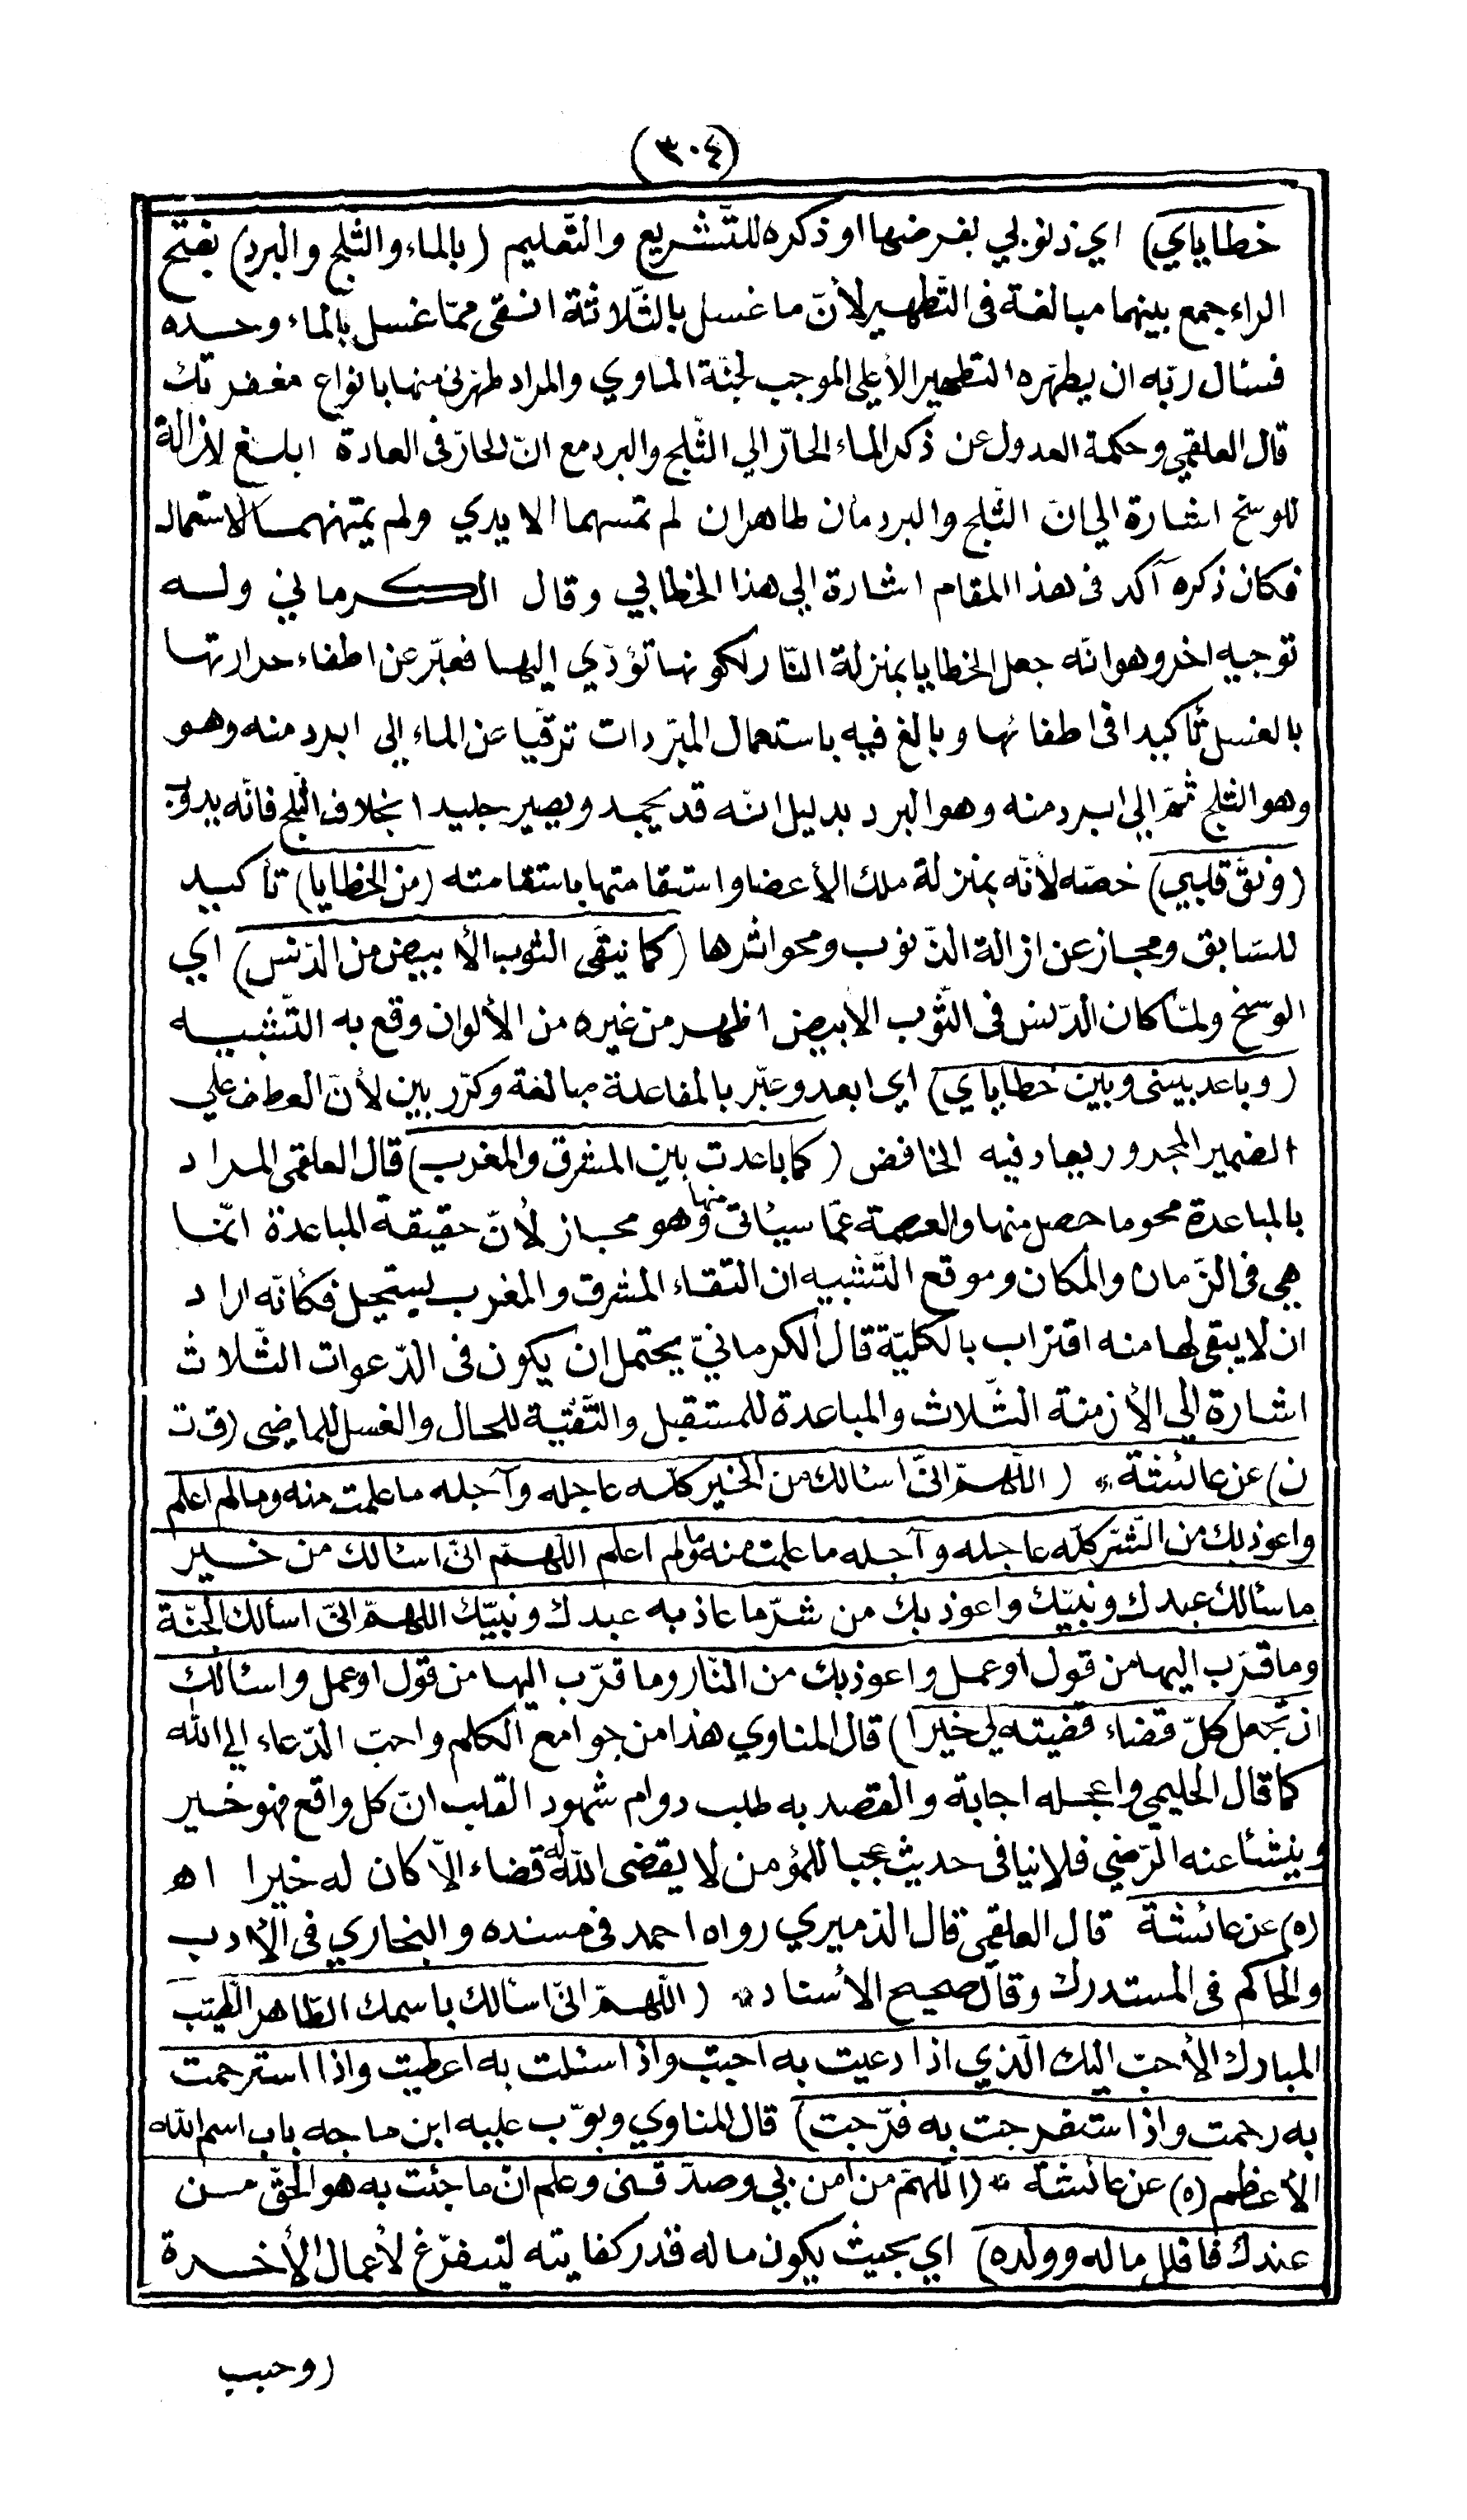 (٣٠٤)
خطاياي) اي ذنوبي بفرضها او ذكره للتّشريع والتّعليم (بالماء والثّلج والبرد) بفتح
الراء جمع بينهما مبالغة فى التّطهير لأنّ ما غسل بالثّلاثة انقى ممّا غسل بالماء وحده
فسئال ربّه ان يطهّره التطهير الأعلى الموجب لجنّة المأوي والمراد طهرنى منها بانواع مغفرتك
قال العلقمي وحكمة العدول عن ذكر الماء الحارّ الي الثّلج والبرد مع انّ الحارّ فى العادة ابلغ لازالة
للوسخ اشارة الي انّ الثّلج والبرد مأن طاهران لم تمسهما الايدي ولم يمتهنهما الاستعمال
فكان ذكره آكد فى هذا المقام اشارة الي هذا الخطابي وقال الكرماني وله
توجيه اخر وهو انّه جعل الخطايا بمنزلة النّار لكونها تؤدّي اليها فعبّر عن اطفاء حرارتها
بالغسل تأكيدا فى اطفائها وبالغ فيه باستعمال المبرّدات ترقّيا عن الماء الي ابرد منه وهو
وهو الثلج ثمّ الي ابرد منه وهو البرد بدليل انّه قد يجمد ويصير جليدا بخلاف الثّلج فانّه يذوب
(ونقّ قلبي) خصّه لأنّه بمنزلة ملك الأعضا واستقامتها باستقامته (من الخطايا) تأكيد
للسّابق ومجاز عن ازالة الذّنوب ومحو اثرها (كما ينقّى الثوب الأبيض من الدّنس) اي
الوسخ ولمّا كان الدّنس فى الثّوب الأبيض اظهر من غيره من الألوان وقع به التّشبيه
(وباعد بينى وبين خطاياي) اي ابعد وعبّر بالمفاعلة مبالغة وكرّر بين لأنّ العطف علي
الضمير المجرور يعاد فيه الخافض (كما باعدت بين المشرق والمغرب) قال العلقمى المراد
بالمباعدة محو ما حصل منها والعصمة عمّا سيئاتى منها وهو مجاز لأنّ حقيقة المباعدة انّما
هي فى الزّمان والمكان وموقع التّشبيه ان التقاء المشرق والمغرب يستحيل فكأنّه اراد
ان لا يبقى لها منه اقتراب بالكليّة قال الكرمانيّ يحتمل ان يكون فى الدّعوات الثّلاث
اشارة الي الأزمنة الثّلاث والمباعدة للمستقبل والتّنقية للحال والغسل للماضى (ق ت
ن) عن عائشة * (اللّهمّ انّى اسئالك من الخير كلّه عاجله وآجله ما علمت منه وما لم اعلم
واعوذ بك من الشّرّ كلّه عاجله وآجله ما علمت منه وما لم اعلم اللهمّ انّى اسئالك من خير
ما سئالك عبدك ونبيّك واعوذ بك من شرّ ما عاذ به عبدك ونبيّك اللهمّ انّى اسألك الجنّة
وما قرّب اليها من قول او عمل واعوذ بك من النّار وما قرّب اليها من قول او عمل واسئالك
ان تجعل كلّ قضاء قضيته لي خيرا) قال المناوي هذا من جوامع الكلم واحبّ الدّعاء الي الله
كما قال الحليمي واعجله اجابة والقصد به طلب دوام شهود القلب انّ كل واقع فهو خير
وينشئا عنه الرّضي فلا ينافى حديث عجبا للمؤمن لا يقضى الله له قضاء الّا كان له خيرا اه
(ه) عن عائشة قال العلقمي قال الدميري رواه احمد فى مسنده والبخاري فى الأدب
والحاكم فى المستدرك وقال صحيح الأسناد * (اللّهمّ انّى اسألك باسمك الطّاهر الطّيّب
المبارك الأحبّ اليك الّذي اذا دعيت به اجبت واذا سئلت به اعطيت واذا استرحمت
به رحمت واذا استفرجت به فرّجت) قال المناوي وبوّب عليه ابن ماجه باب اسم الله
الأعظم (ه) عن عائشة * (اللّهمّ من آمن بي وصدّقنى وعلم انّ ما جئت به هو الحقّ من
عندك فاقلل ماله وولده) اي بحيث يكون ماله قدر كفايته ليتفرّغ لأعمال الأخرة
(وحبب